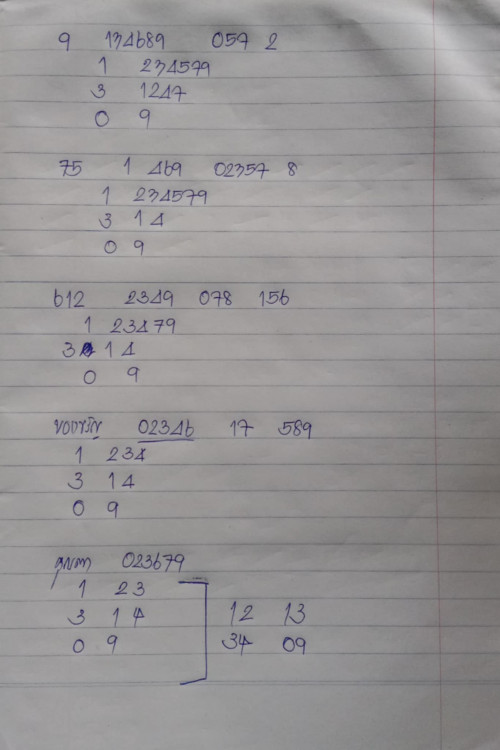 9 134689 057 2
1 234579
3 1247
0 9
75 1 469 02357 8
1 234579
3 14
0 9
612 2349 078 156
1 23479
3 14
0 9
ของขวัญ 02346 17 589
1 234
3 14
0 9
023679
1 23
3 14 12 13
0 9 34 09